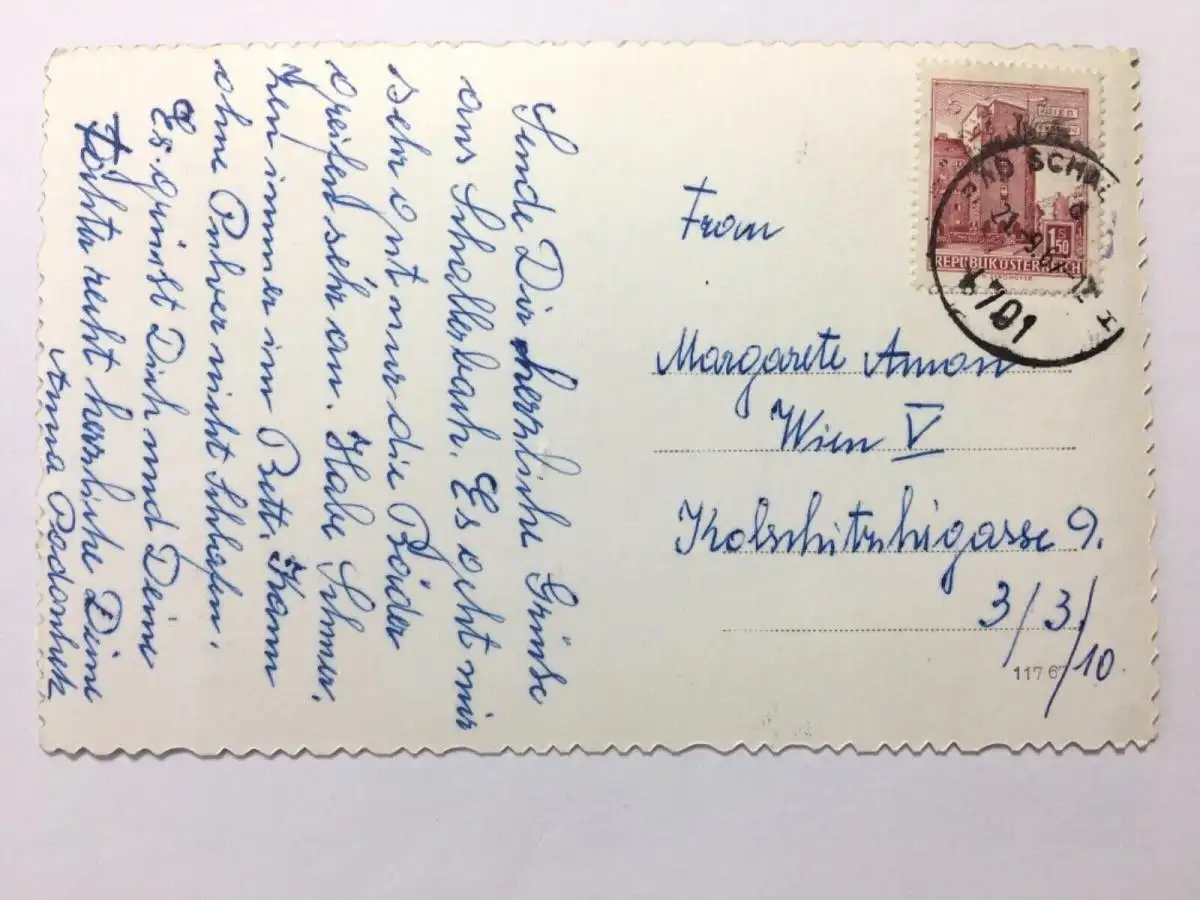 Sende Dir herrliche Grüße
aus Schallerbach. Es geht mir
sehr gut nur die Bäder
greifen sehr an. Habe Schmer
zen immer im Bett. Kann
ohne Pulver nicht Schlafen.
Es grüsst Dich und Deine
Töchter recht herzliche Deine
Anna
Frau
Margarete Amon
Wien V
Kolschitzkigasse 9.
3/3/10
117 67
1 S 50
REPUBLIK ÖSTERREICH
BAD SCHAL
4701